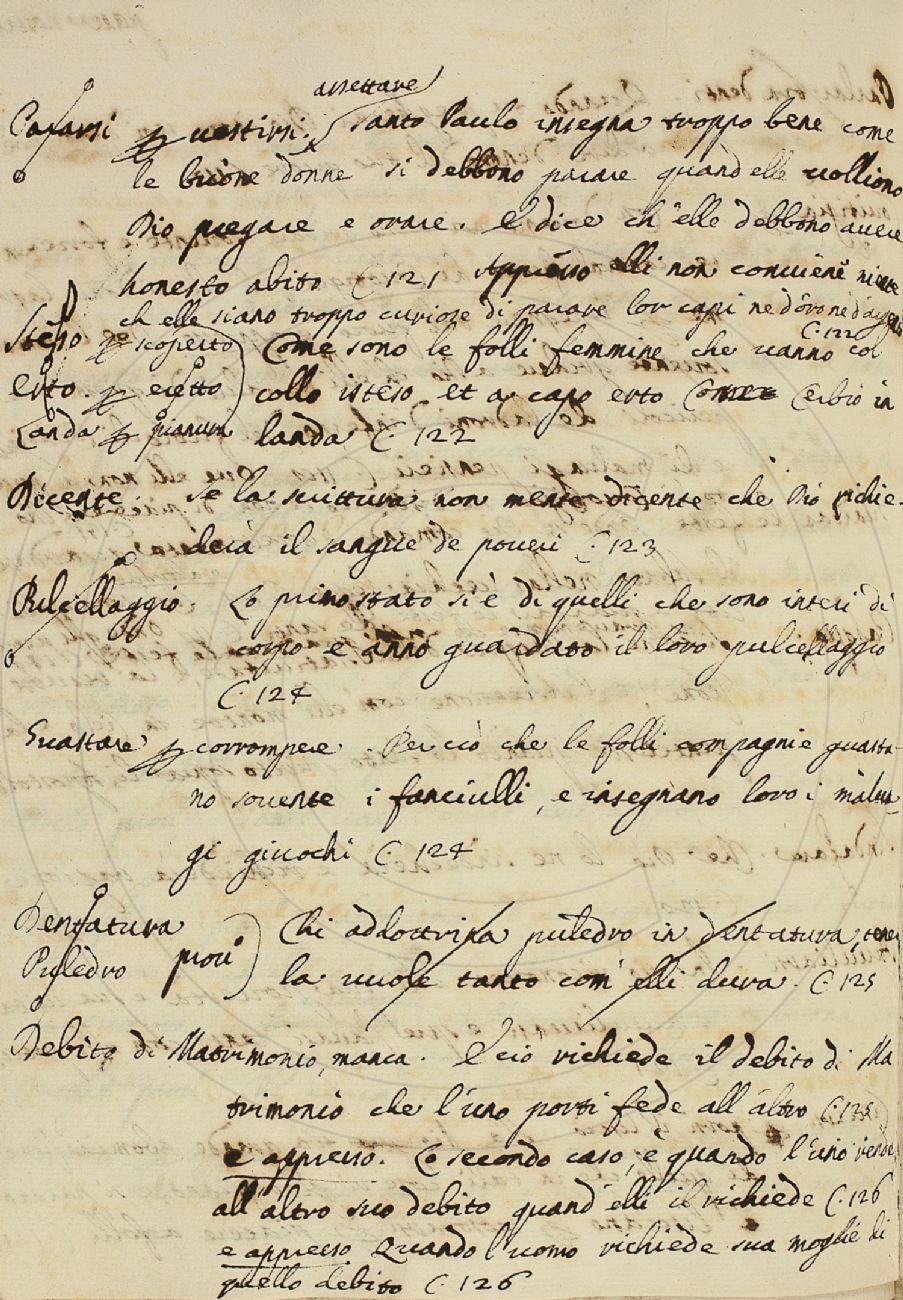 assettare
Pararsi p vestirsi. Santo Paulo insegna troppo bene come
le buone donne si debbono parare quand elle volliono
Dio pregare e orare. E dice ch'elle debbono avere
honesto abito C. 121 Appresso elli non conviene niente
ch elle siano troppo curiose di parare lor capi ne d'oro ne d'argento
C. 122
Steso p scoperto Come sono le folli femmine che vanno col
erto. p eretto collo isteso et a capo erto Come Cerbio in
Landa p pianura landa C. 122
Dicente. Se la scrittura non mente dicente che Dio richie-
derà il sangue de poveri C. 123
Pulcellaggio. Lo primo stato si è di quelli che sono interi di
corpo e anno guardato il loro pulcellaggio
C. 124
Guastare p corrompere. Per ciò che le folli compagnie guasta-
no sovente i fanciulli, e insegnano loro i malva-
gi giuochi C. 124
Dentatura
Puledro Chi addottrina puledro in dentatura, tener
la vuole tanto com' elli dura. C. 125
Debito di Matrimonio, manca. E ciò richiede il debito di Ma
trimonio che l'uno porti fede all'altro C. 125
e appresso. Lo secondo caso, è quando l'uno rende
all'altro suo debito quand'elli il richiede C. 126
e appresso Quando l'uomo richiede sua moglie di
quello debito C. 126